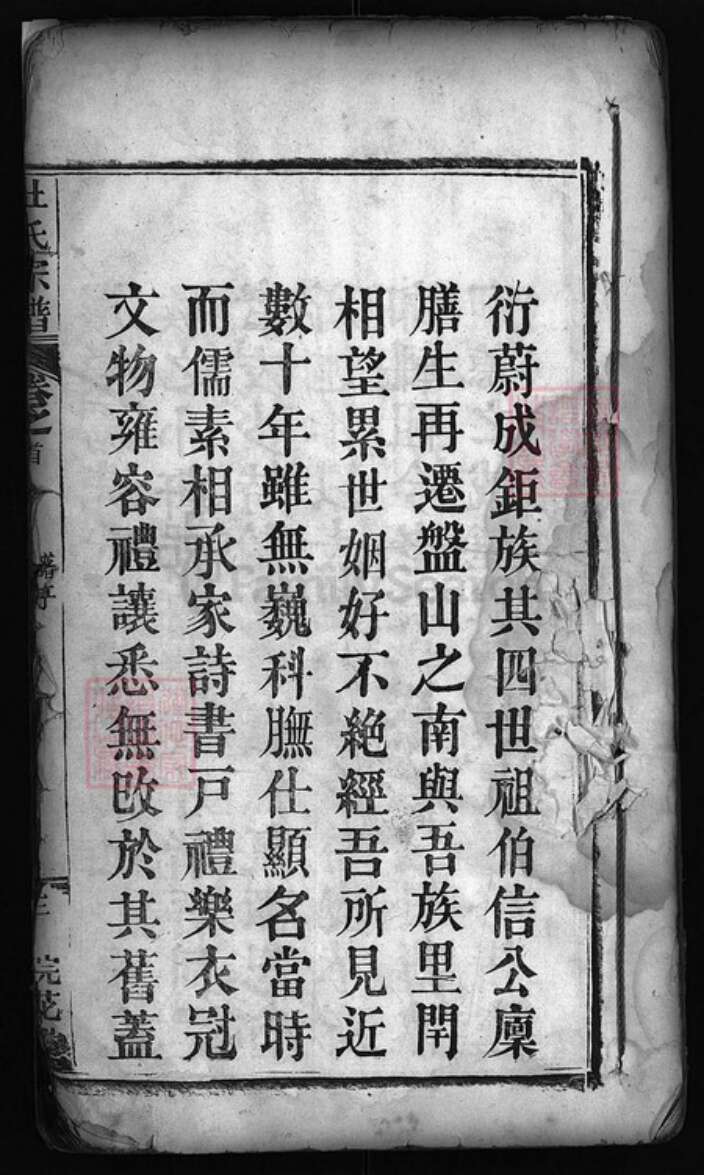 衍蔚成鉅族其四世祖伯信公廩
膳生再遷盤山之南與吾族里閈
相望累世姻好不絕經吾所見近
數十年雖無巍科膴仕顯名當時
而儒素相承家詩書戸禮樂衣冠
文物雍容禮讓悉無改於其舊蓋
杜氏宗譜
卷之首
舊序
三
浣花